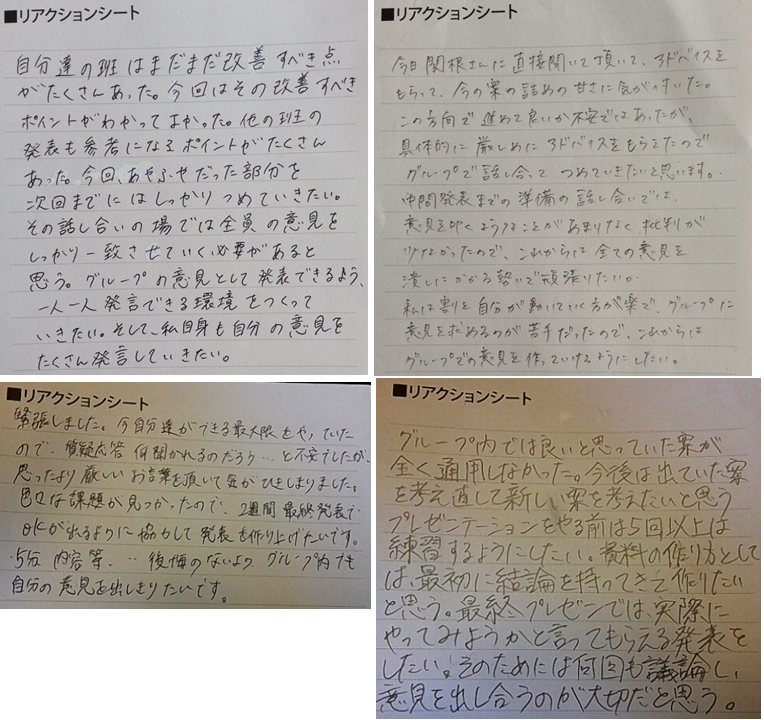 ■リアクションシート
自分達の班はまだまだ改善すべき点
がたくさんあった。今回はその改善すべき
ポイントがわかってよかった。他の班の
発表も参考になるポイントがたくさん
あった。今回、あやふやだった部分を
次回までにはしっかりつめていきたい。
その話し合いの場では全員の意見を
しっかり一致させていく必要があると
思う。グループの意見として発表できるよう、
一人一人発言できる環境をつくって
いきたい。そして、私自身も自分の意見を
たくさん発言していきたい。
■リアクションシート
今日関根さんに直接聞いて頂いて、アドバイスを
もらって、今の案の詰めの甘さに気が付いた。
この方向で進めて良いか不安ではあったが、
具体的に厳しめにアドバイスをもらえたので
グループで話し合ってつめていきたいと思います。
中間発表までの準備の話し合いでは、
意見を叩くようなことがあまりなく批判が
少なかったので、これからは全ての意見を
潰しにかかる勢いで頑張りたい。
私は割と自分が動いていく方が楽で、グループに
意見を求めるのが苦手だったので、これからは
グループでの意見を作っていけるようにしたい。
■リアクションシート
緊張しました。今自分達ができる最大限をやっていた
ので、質疑応答何聞かれるのだろう…と不安でしたが、
思ったより厳しいお言葉を頂いて気がひきしまりました。
色々な課題が見つかったので、2週間最終発表で
OKが出るように協力して発表を作り上げたいです。
5分 内容等…後悔のないようグループ内でも
自分の意見を出しきりたいです。
■リアクションシート
グループ内では良いと思っていた案が
全く通用しなかった。今後は出ていた案
を考え直して新しい案を考えたいと思う
プレゼンテーションをやる前は5回以上は
練習するようにしたい。資料の作り方として
は、最初に結論を持ってきて作りたい
と思う。最終プレゼンでは、実際に
やってみようかと言ってもらえる発表を
したい。そのためには何回も議論し、
意見を出し合うのが大切だと思う。